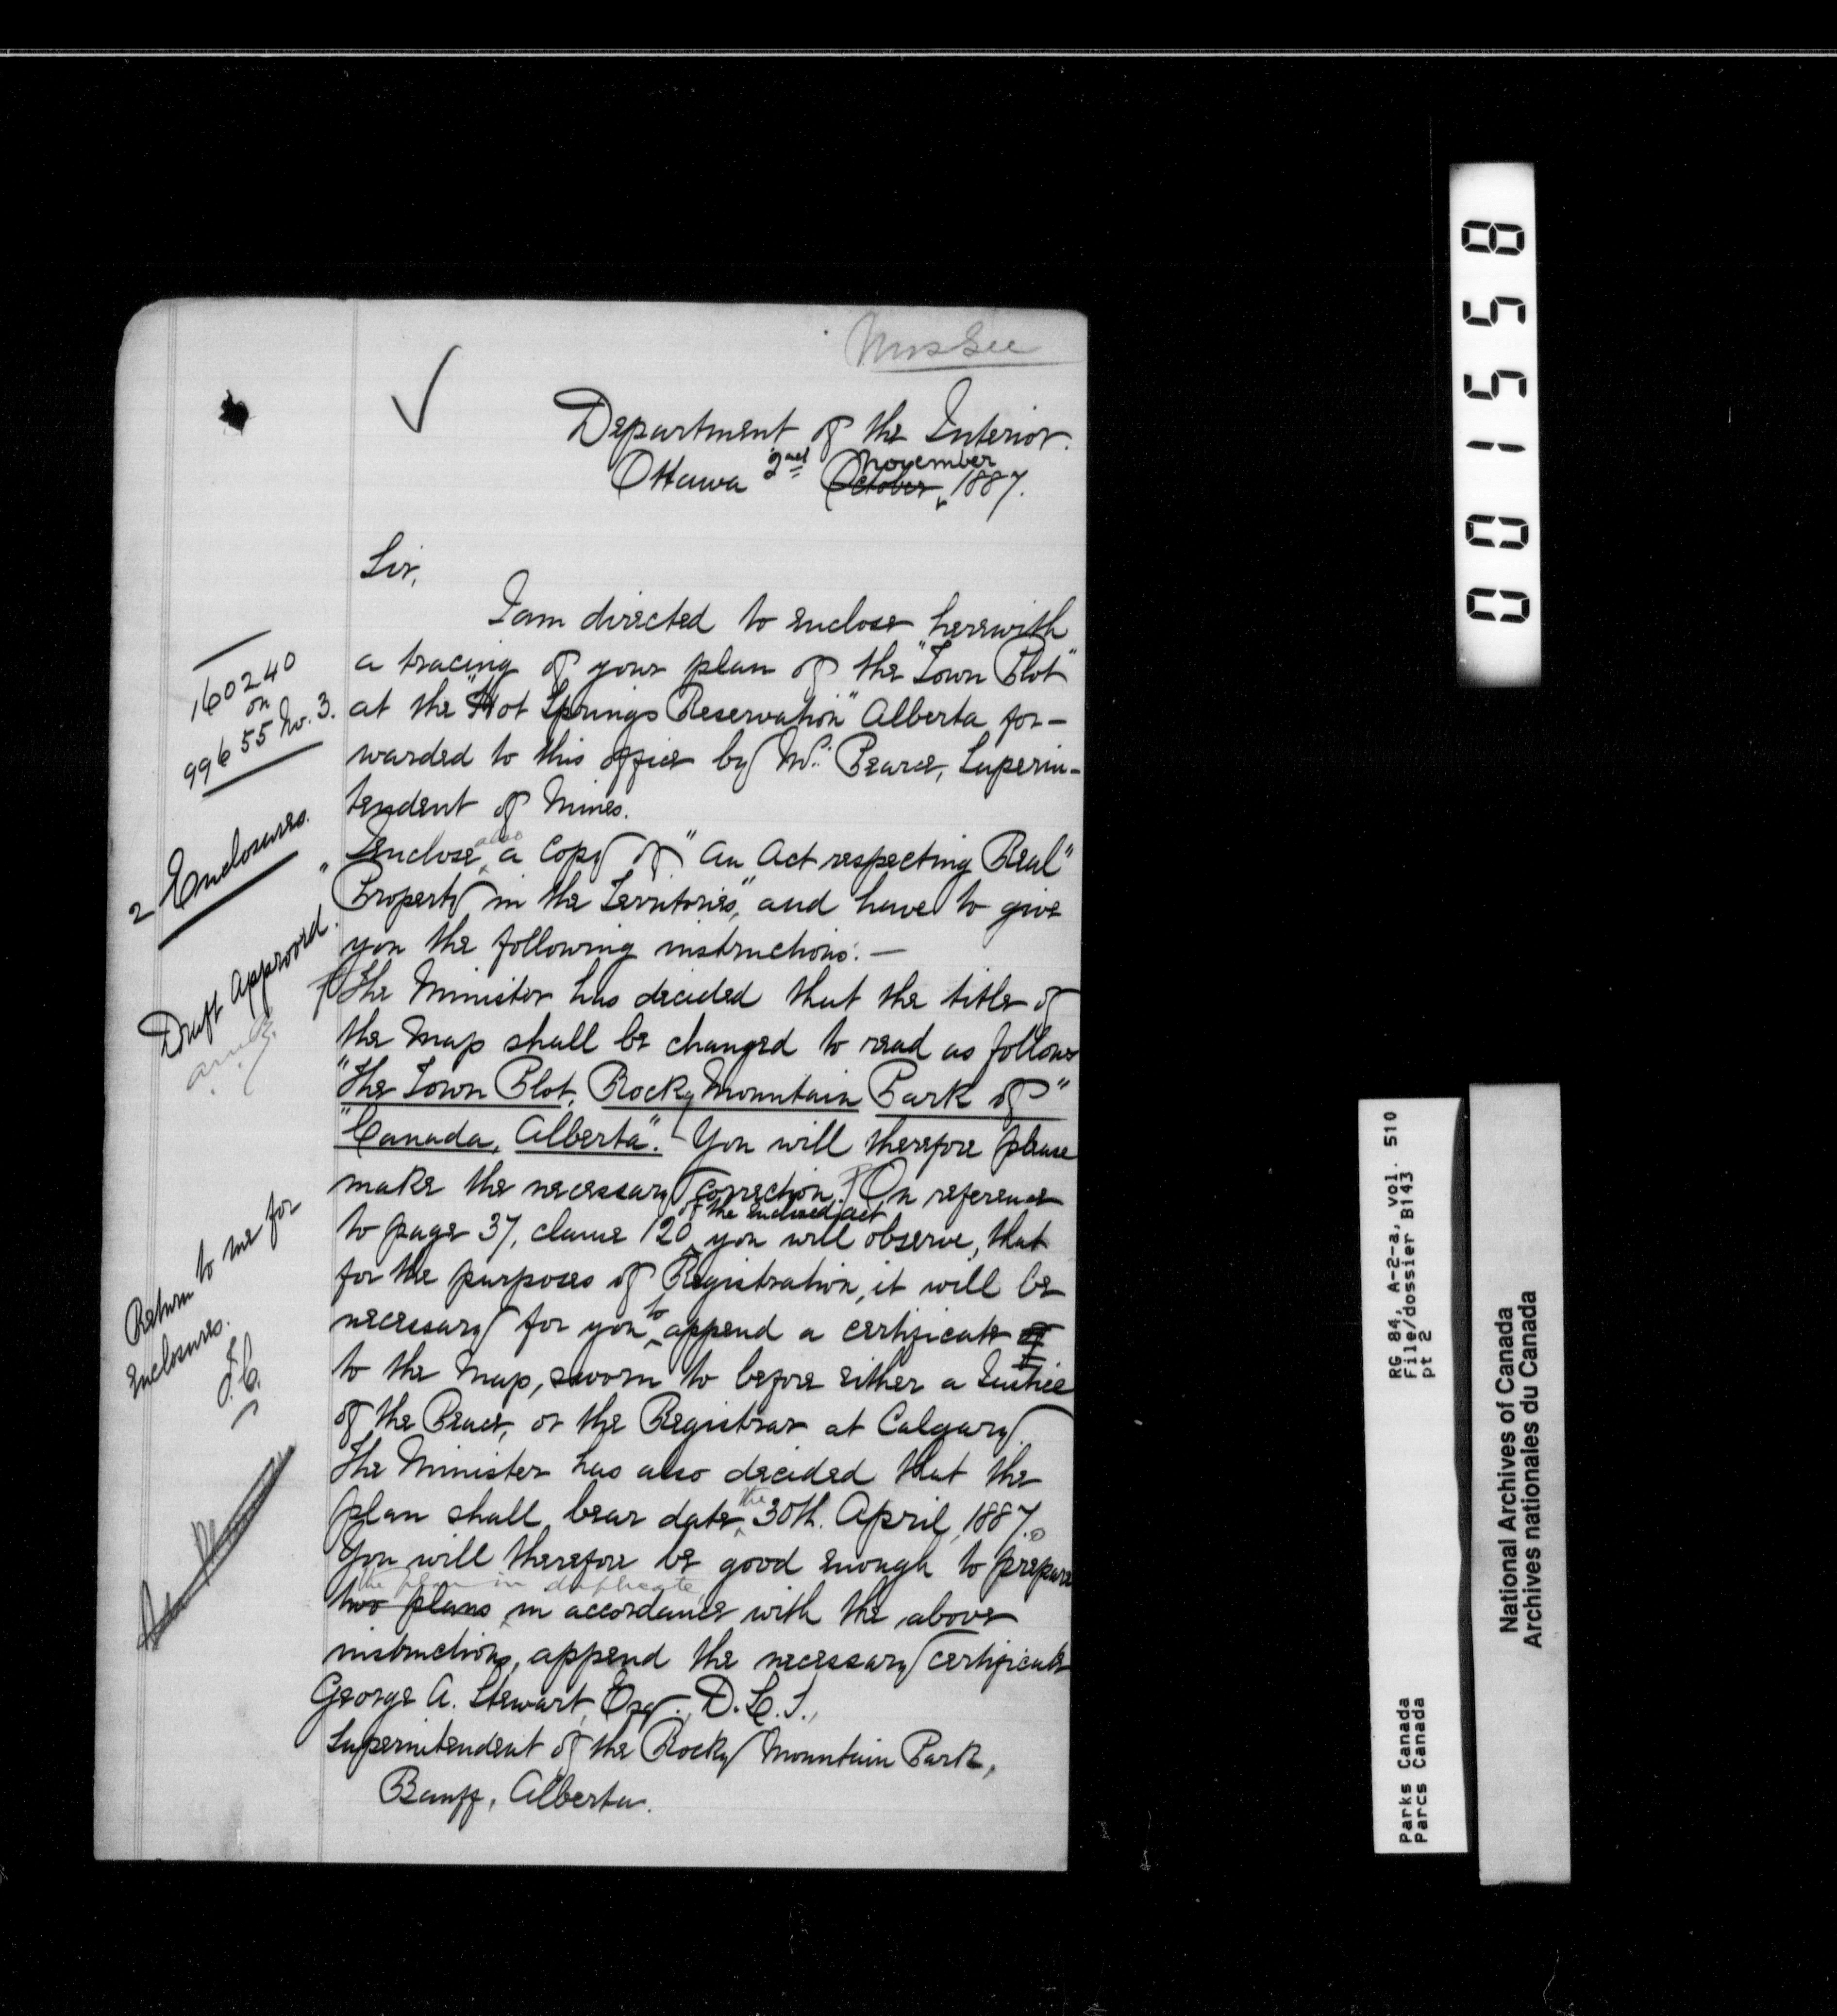 Miss Gee
Department of the Interior.
Ottawa 2nd October, November 1887.
Sir,
I am directed to enclose herewith
a tracing of your plan of the "Town Plot"
at the "Hot Springs Reservation" Alberta for-
warded to this office by Mr. Pearce, Superin-
tendent of Mines.
I enclose also a copy of "An Act respecting Real"
"Property in the Territories", and have to give
you the following instructions:—
The Minister has decided that the title of
the map shall be changed to read as follows
"The Town Plot, Rocky Mountain Park of"
"Canada, Alberta". You will therefore please
make the necessary correction. On reference
to page 37, clause 120 of the enclosed act you will observe, that
for the purposes of Registration, it will be
necessary for you to append a certificate of
to the map, sworn to before either a Justice
of the Peace, or the Registrar at Calgary.
The Minister has also decided that the
plan shall bear date the 30th. April, 1887.
You will therefore be good enough to prepare
two plans the plan in duplicate in accordance with the above
instructions, append the necessary certificate
George A. Stewart, Esq., D.L.S.,
Superintendent of the Rocky Mountain Park,
Banff, Alberta.
160240
on
99655 No. 3.
2 Enclosures.
Draft approved.
Return to me for
enclosures.
001558
RG 84, A-2-a, vol. 510
File/dossier B143
pt 2
Parks Canada
Parcs Canada
National Archives of Canada
Archives nationales du Canada